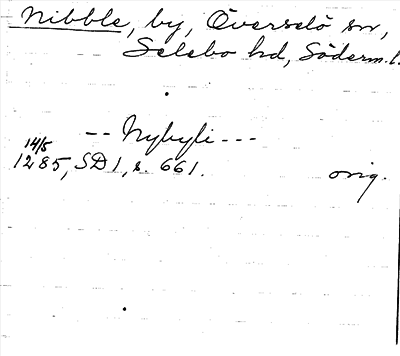 Nibble, by, Överselö sn,
Selebo hd, Söderm.l.
-- Nybyli ---
14/5
1285, SD 1, s. 661. orig.